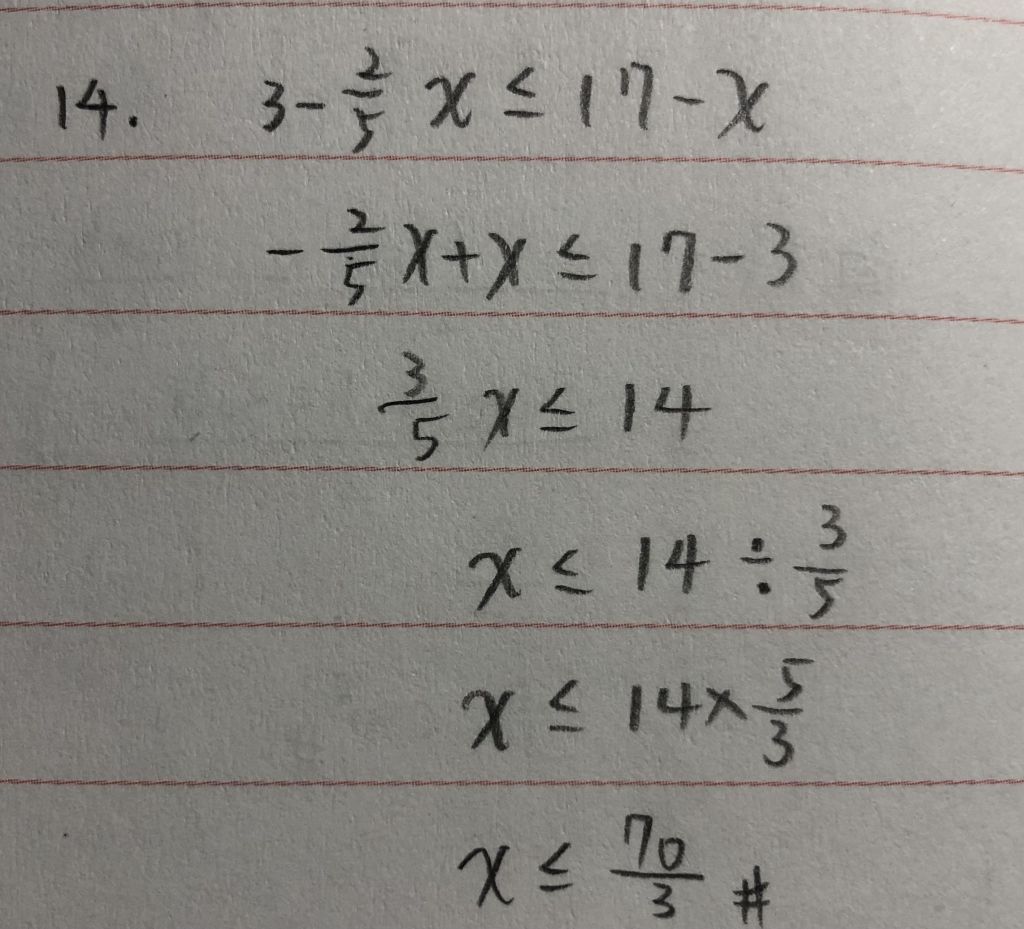 14. 3 - 2/5 x ≤ 17 - x
- 2/5 x + x ≤ 17 - 3
3/5 x ≤ 14
x ≤ 14 ÷ 3/5
x ≤ 14 × 5/3
x ≤ 70/3 #